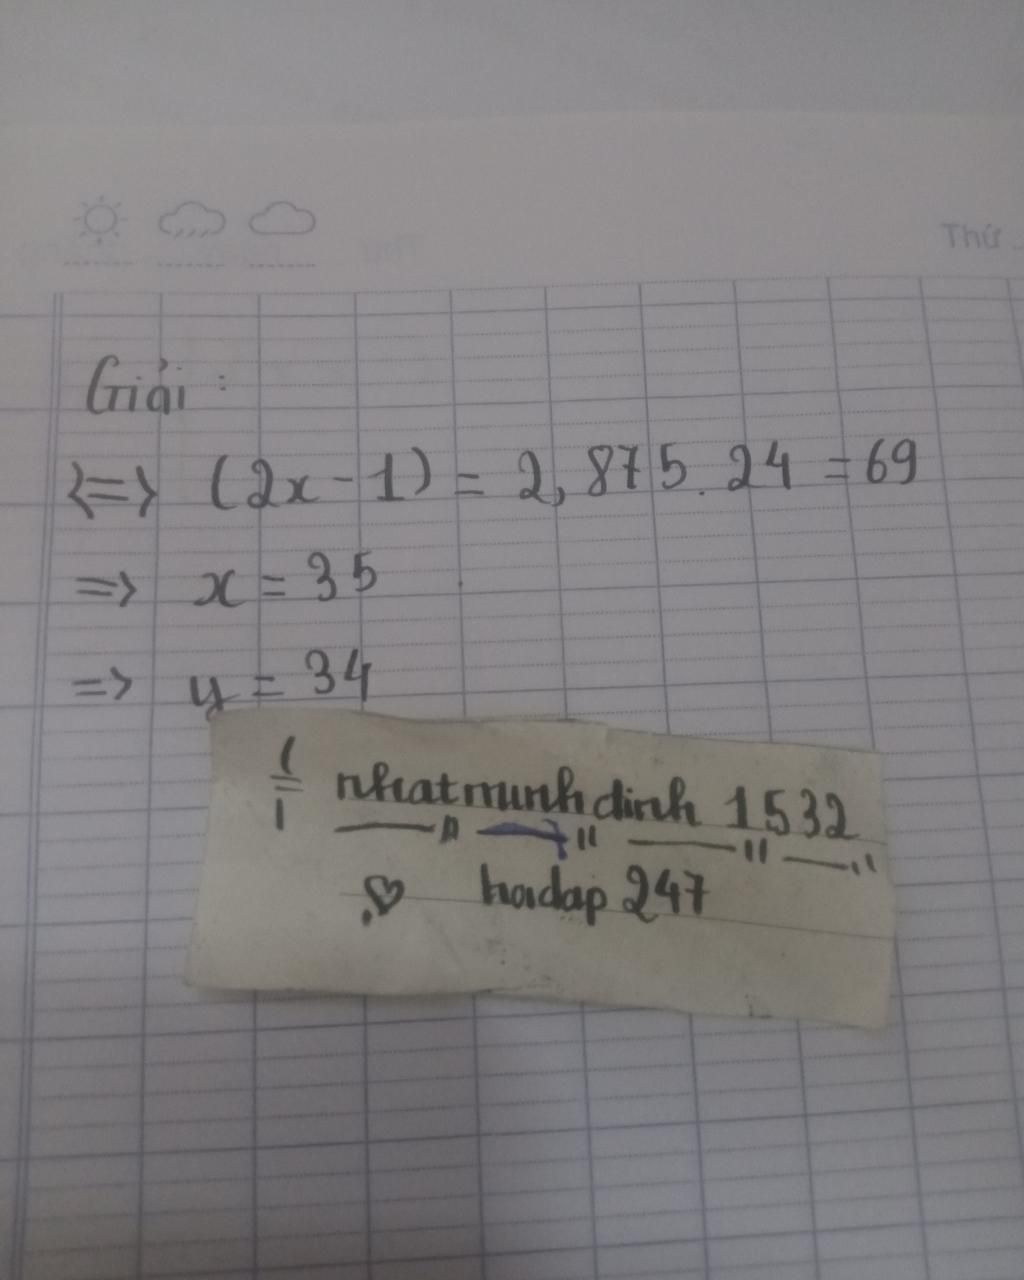 Thứ
Giải :
<=> (2x - 1) = 2,875.24 = 69
=> x = 35
=> y = 34
nhatminhdinh 1532
hoidap 247